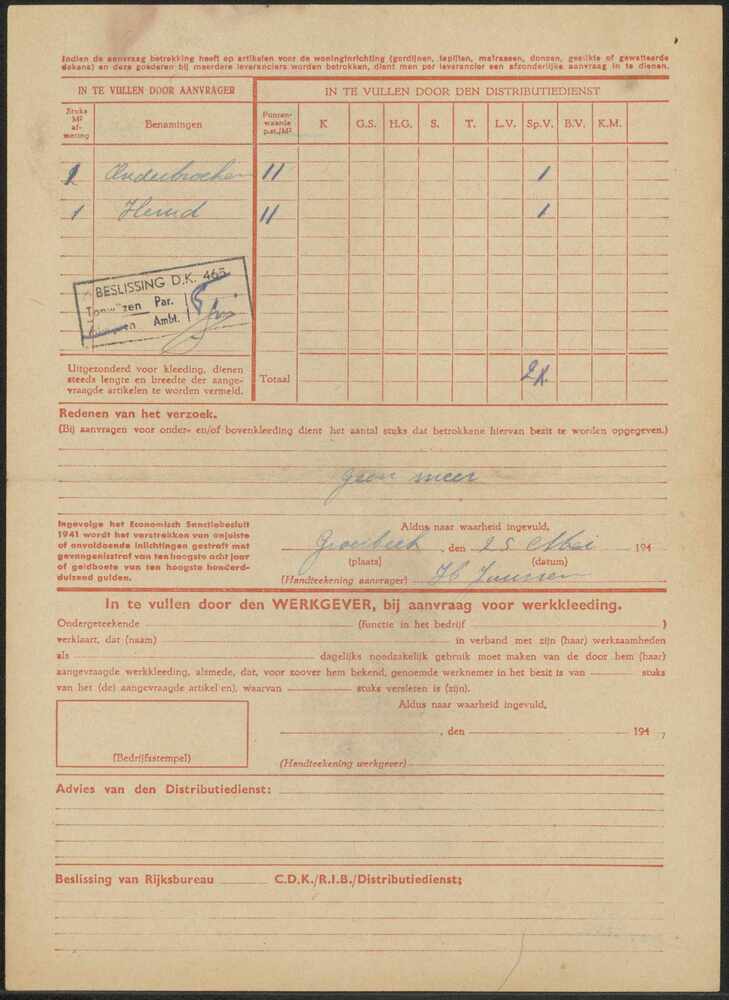 Indien de aanvraag betrekking heeft op artikelen voor de woninginrichting (gordijnen, tapijten, matrassen, donzen, gestikte of gewatteerde
dekens) en deze goederen bij meerdere leveranciers worden betrokken, dient men per leverancier een afzonderlijke aanvraag in te dienen.
IN TE VULLEN DOOR AANVRAGER
IN TE VULLEN DOOR DEN DISTRIBUTIEDIENST
Stuks M² af- meting Benamingen Punten- waarde p.st./M² K G.S. H.G. S. T. L.V. Sp.V. B.V. K.M.
1 Onderbroeken 11 1
1 Hemd 11 1
BESLISSING D.K. 465
Toewijzen Par. 5
Ambt.
Uitgezonderd voor kleeding, dienen
steeds lengte en breedte der aange-
vraagde artikelen te worden vermeld.
Totaal 2
Redenen van het verzoek.
(Bij aanvragen voor onder- en/of bovenkleeding dient het aantal stuks dat betrokkene hiervan bezit te worden opgegeven.)
geen meer
Ingevolge het Economisch Sanctiebesluit
1941 wordt het verstrekken van onjuiste
of onvoldoende inlichtingen gestraft met
gevangenisstraf van ten hoogste acht jaar
of geldboete van ten hoogste honderd-
duizend gulden.
Aldus naar waarheid ingevuld,
Groesbeek, den 25 Mei 194
(plaats) (datum)
(Handteekening aanvrager) H Janssen
In te vullen door den WERKGEVER, bij aanvraag voor werkkleeding.
Ondergeteekende (functie in het bedrijf )
verklaart, dat (naam) in verband met zijn (haar) werkzaamheden
als dagelijks noodzakelijk gebruik moet maken van de door hem (haar)
aangevraagde werkkleeding, alsmede, dat, voor zoover hem bekend, genoemde werknemer in het bezit is van stuks
van het (de) aangevraagde artikel(en), waarvan stuks versleten is (zijn).
Aldus naar waarheid ingevuld,
, den 194
(Bedrijfsstempel)
(Handteekening werkgever)
Advies van den Distributiedienst:
Beslissing van Rijksbureau C.D.K./R.I.B./Distributiedienst;